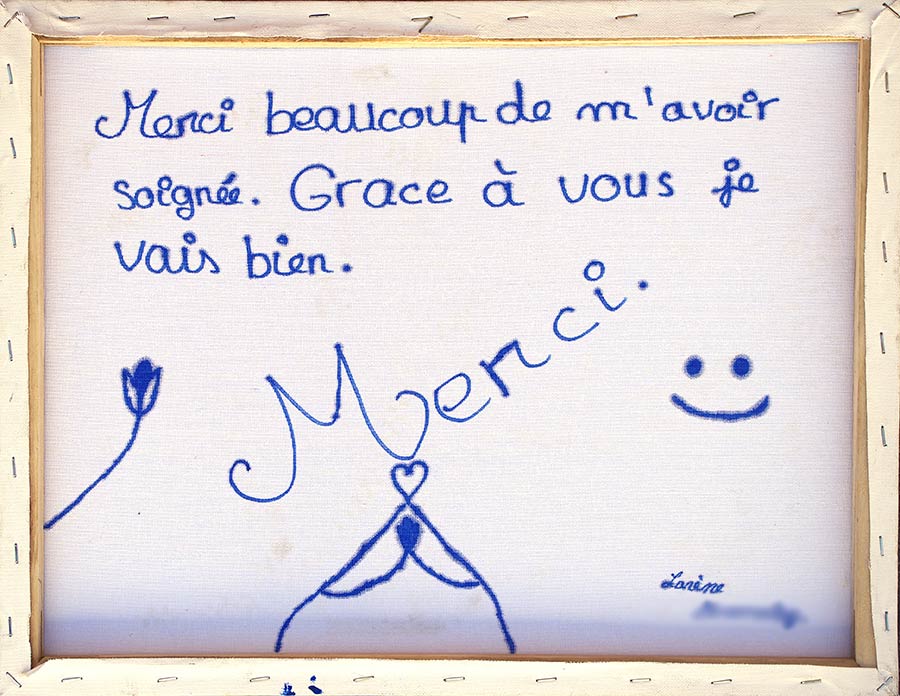 Merci beaucoup de m'avoir
soignée. Grace à vous je
vais bien.
Merci.
Lorène